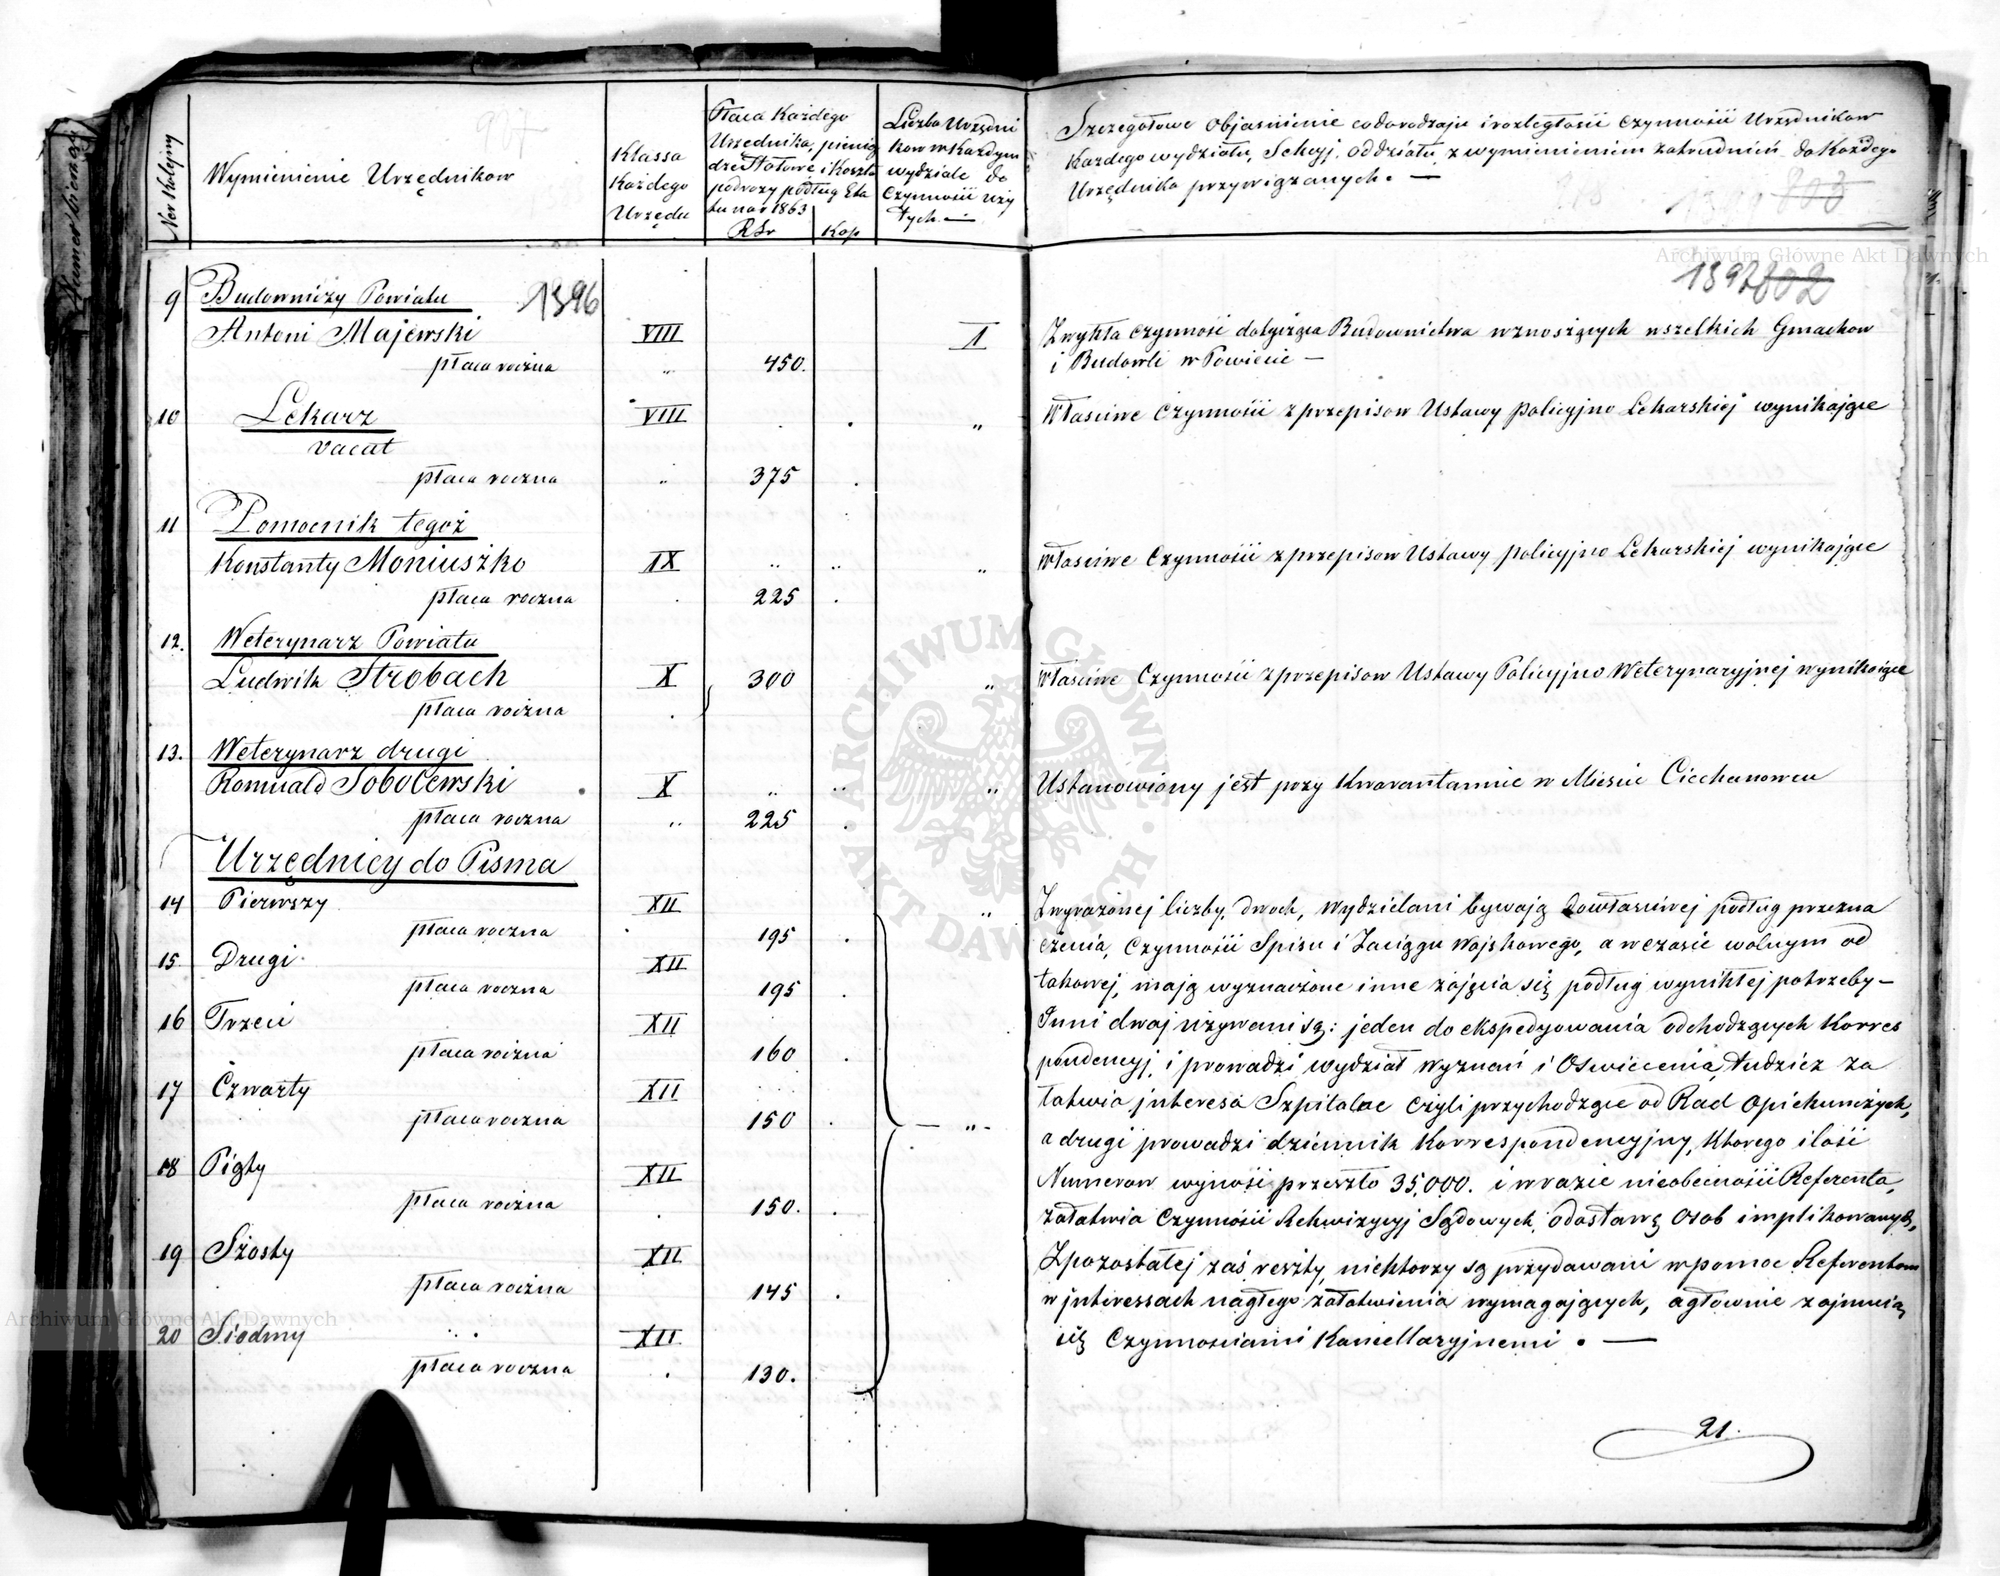 Nor Kolejny
Wymienienie Urzędnikow
Klassa
Każdego
Urzędu
Płaca Każdego
Urzędnika, pienią
dze Stołowe i Koszta
podrozy podług Eta
tu na r 1863
RSr
Kop
Liczba Urzędni
kow w Każdym
wydziale do
Czynnosci uży
tych. —
Szczegołowe Objasnienie co do rodzaju i rozległosci Czynności Urzędnikow
Każdego wydziału, Sekcyj, oddziału, z wymienieniem zatrudnień do Każdego
Urzędnika przywiązanych. —
Archiwum Główne Akt Dawnych
1397 802
9 Budowniczy Powiatu 1396
Antoni Majewski VIII 1
płaca roczna „ 450.
Zwykła czynność dotycząca Budownictwa wznoszących wszelkich Gmachow
i Budowli w Powiecie —
10 Lekarz VIII „
vacat
płaca roczna „ 375
Własciwe Czynności z przepisow Ustawy policyjno Lekarskiej wynikające
11 Pomocnik tegoż
Konstanty Moniuszko IX „
płaca roczna 225
Własciwe Czynności z przepisow Ustawy policyjno Lekarskiej wynikające
12. Weterynarz Powiatu
Ludwik Strobach X 300 „
płaca roczna
Własciwe Czynności z przepisow Ustawy Policyjno Weterynaryjnej wynikające
13. Weterynarz drugi
Romuald Sobolewski X „
płaca roczna „ 225
Ustanowiony jest przy Kwarantannie w Miescie Ciechanowcu
ARCHIWUM GŁÓWNE · AKT DAWNYCH ·
Urzędnicy do Pisma
14 Pierwszy XII „
płaca roczna 195
15 Drugi XII
płaca roczna 195
16 Trzeci XII
płaca roczna 160
17 Czwarty XII
płaca roczna 150 — „ -
18 Piąty XII
płaca roczna 150.
19 Szosty XII
płaca roczna 145
20 Siodmy XII
płaca roczna 130.
Z wyrażonej liczby, dwoch, wydzielani bywają do własciwej podług przezna
czenia, Czynności Spisu i Zaciągu Wojskowego, a w czasie wolnym od
takowej, mają wyznaczone inne zajęcia się podług wynikłej potrzeby —
Inni dwaj używani są: jeden do ekspedyowania odchodzących Korres
pondencyj, i prowadzi wydział Wyznań i Oswiecenia, tudzież za
łatwia interesa Szpitalne czyli przychodzące od Rad Opiekuńczych,
a drugi prowadzi dziennik Korrespondencyjny, Ktorego ilość
Numerow wynosi przeszło 35,000. i w razie nieobecności Referenta,
załatwia Czynności Rekwizycyj Sądowych, o dostawę Osob implikowanych,
Z pozostałej zaś reszty, niektorzy są przydawani w pomoc Referentom
w interessach nagłego załatwienia wymagających, a głownie zajmują
się Czynnosciami Kancellaryjnemi. —
21.
Archiwum Główne Akt Dawnych